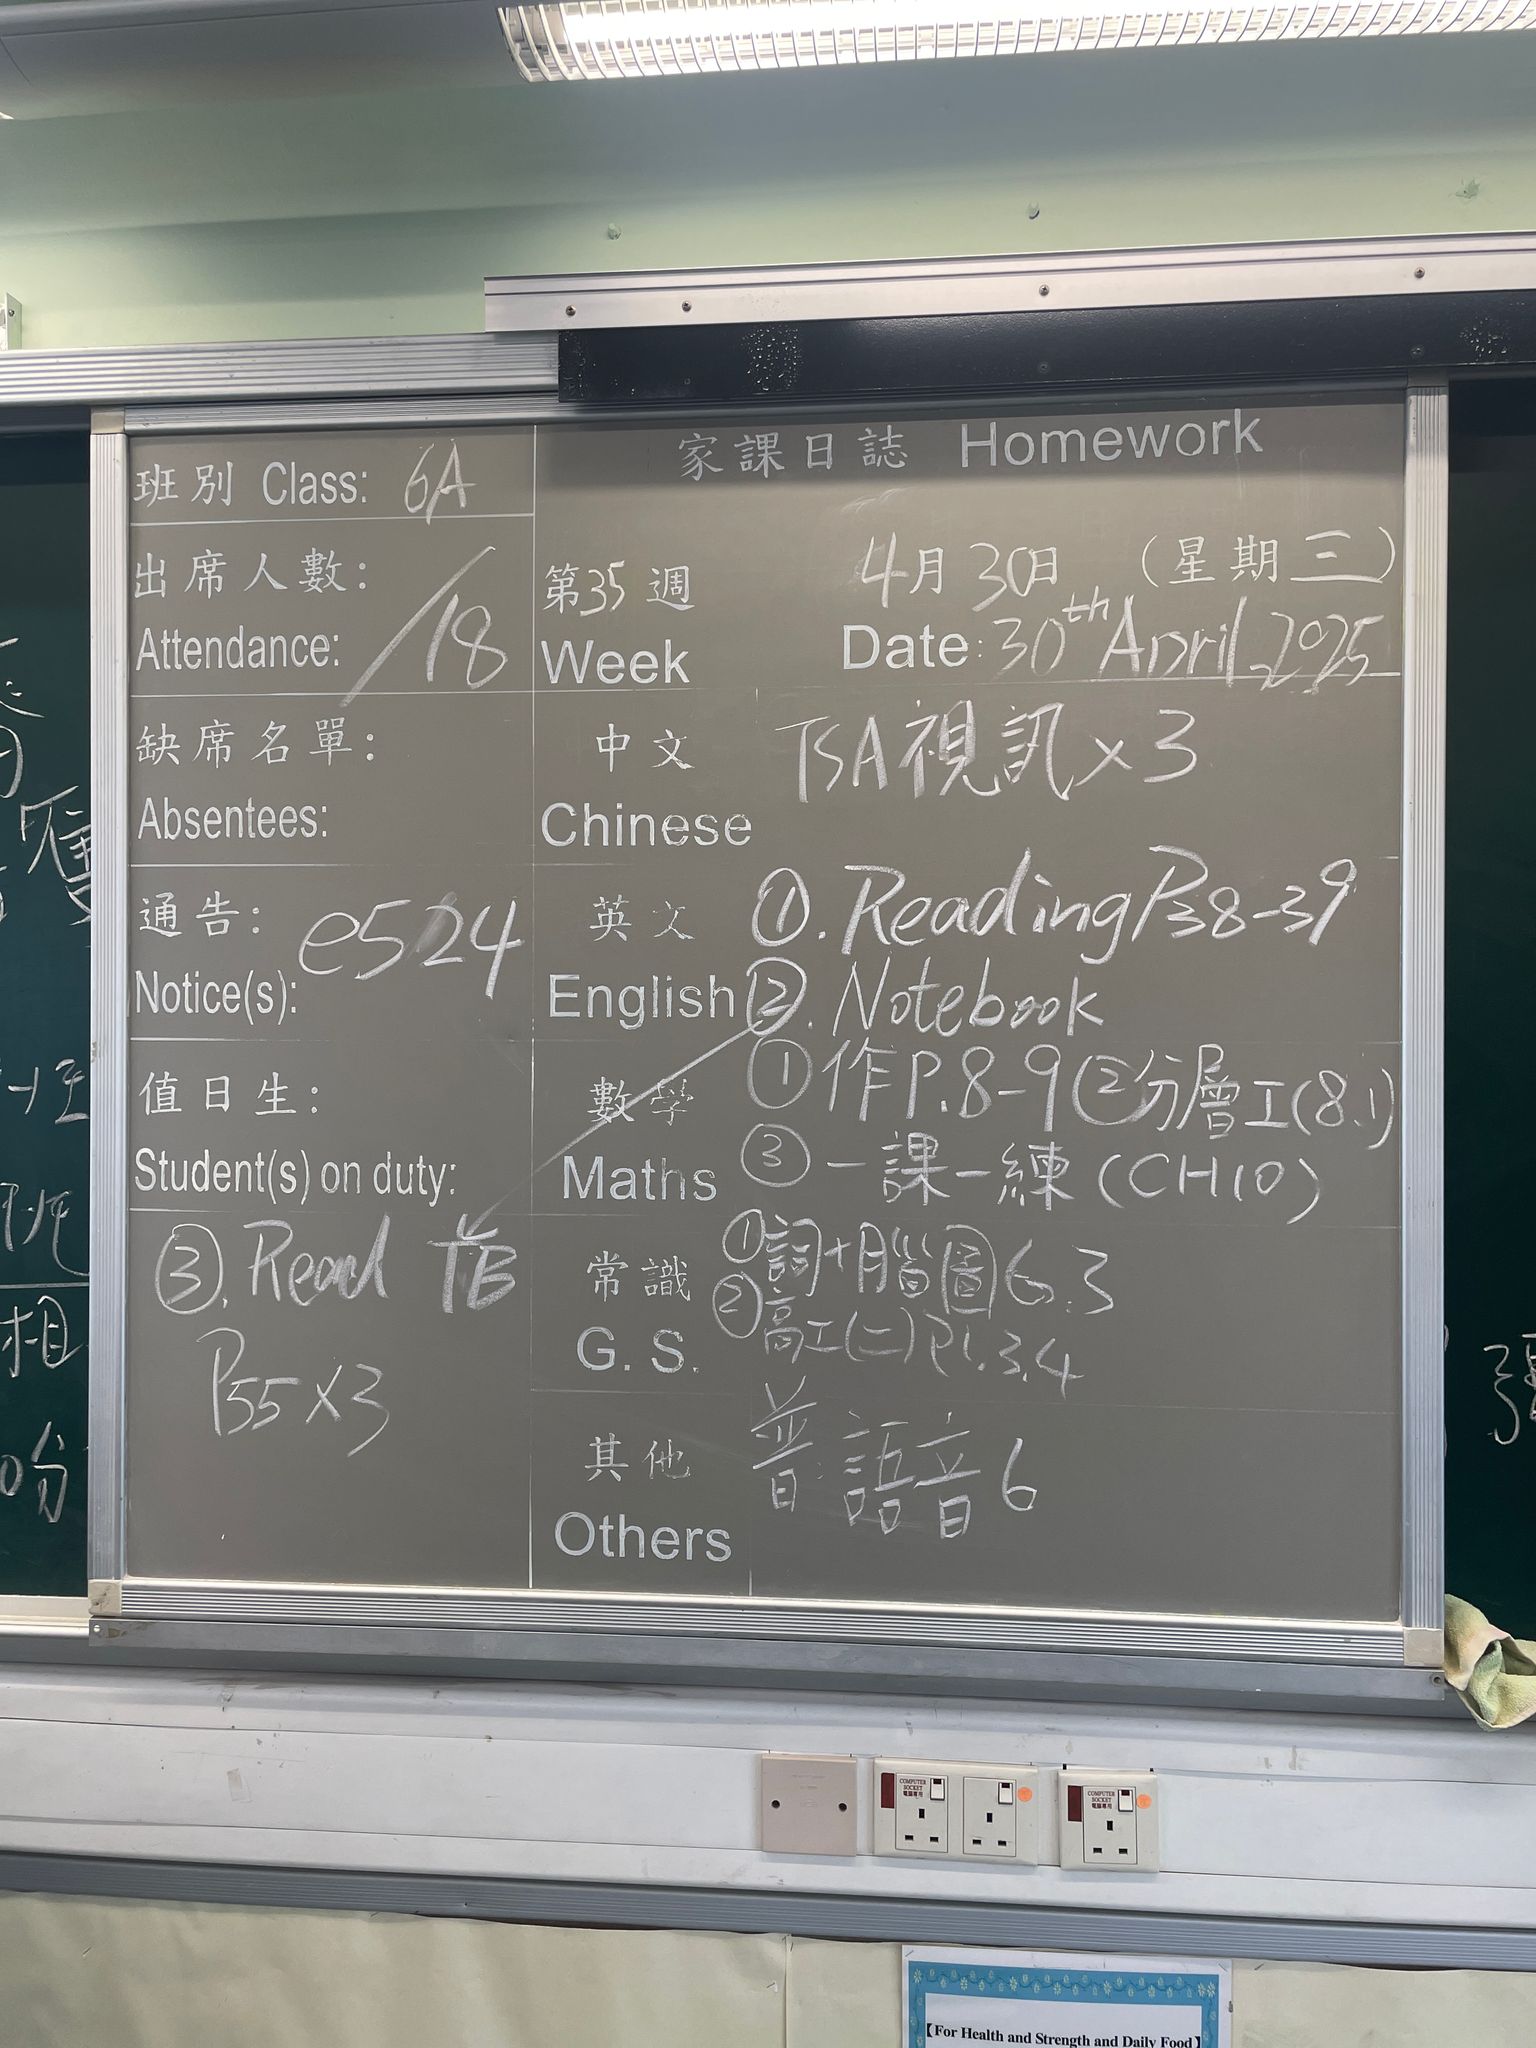 班別 Class: 6A
出席人數:
Attendance: /18
缺席名單:
Absentees:
通告:
Notice(s): e524
值日生:
Student(s) on duty:
③. Read TB
P55×3
家課日誌 Homework
第35週
Week
4月30日 (星期三)
Date: 30th April, 2025
中文
Chinese
TSA視訊×3
英文
English
①. Reading P38-39
②. Notebook
數學
Maths
①作P.8-9 ②分層工(8.1)
③一課一練(CH10)
常識
G. S.
①詞+腦圖6.3
②高工(二)P1.3.4
其他
Others
普:語音6
相
吩
COMPUTER SOCKET
電腦專用
COMPUTER SOCKET
電腦專用
【For Health and Strength and Daily Food】